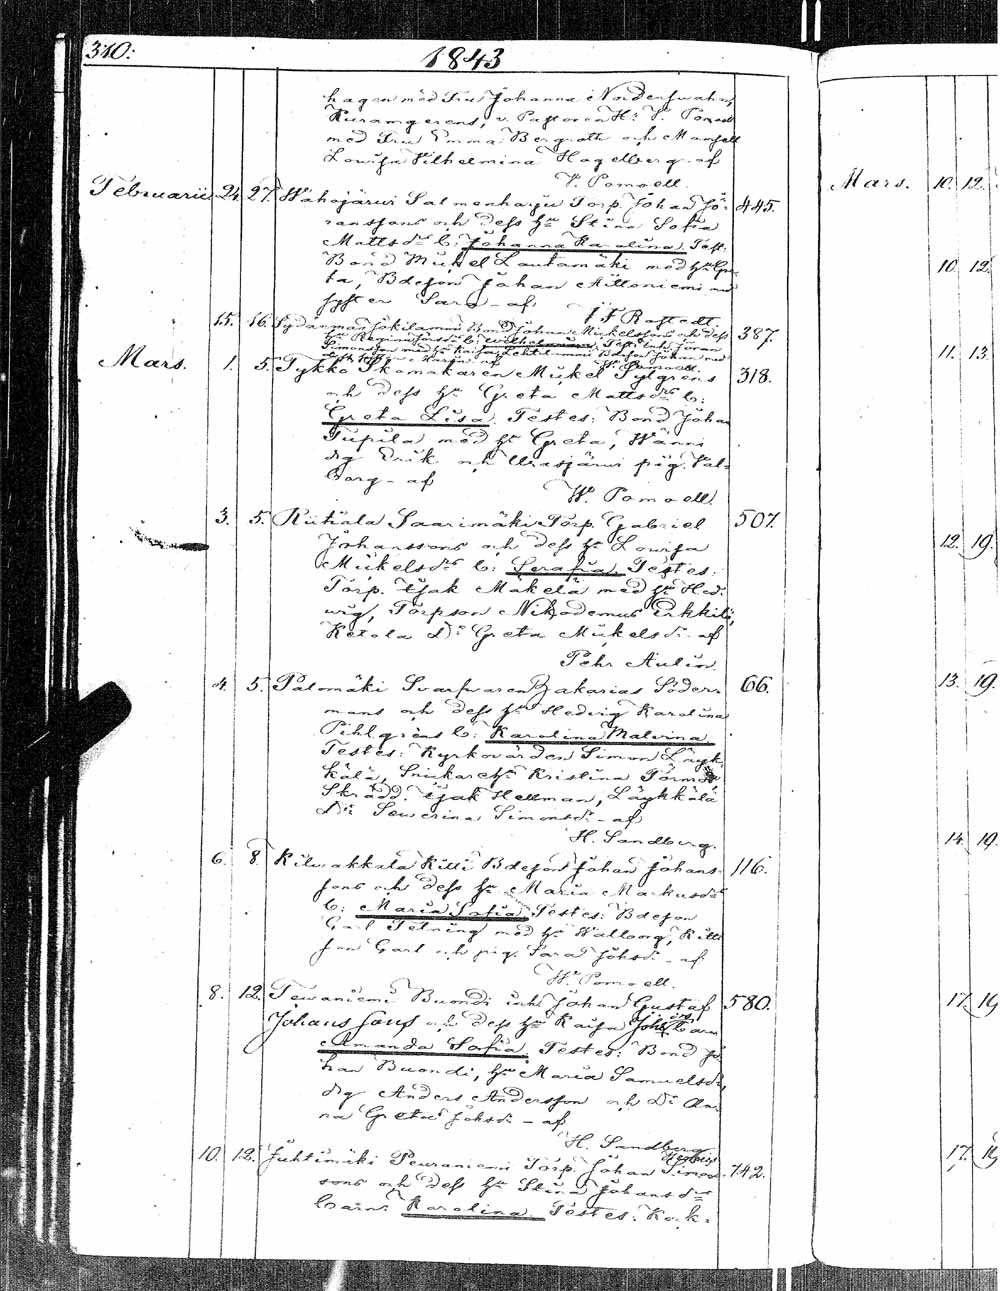 310.
1843
hagen med Fru Johanna
v. Pastoren H. V. Pomoell
med Fru Emma Bergroth och Mamsell
Lowisa Vilhelmina Hagelberg af
V. Pomoell.
Februarii 24. 27. Wahojärwi Salmenharju Torp. Johan Jö- 445.
ranssons och dess hu Stina Sofia
Mattsdr b: Johanna Karolina. Test:
Bond Mickel Lautamäki med hu Gre-
ta, Bdeson Johan med
syster Sara - af
15. 16. 387.
Wilhelmina
Mars. 1. 5. Tykkö Skomakaren Mickel Sylgrens 318.
och dess hu Greta Mattsdr b:
Greta Lisa. Testes: Bond Johan
Tupila med hu Greta, Wänni
drg Erik och Urasjärwi pig. Val-
borg - af
W. Pomoell.
3. 5. Riitiala Saarimäki Torp. Gabriel 507.
Johanssons och dess hu Lowisa
Mickelsdrs b: Serafia. Testes:
Torp. Isak Mäkelä med hu Hed-
wig, Torpson Nikodemus Erkkilä,
Ketola Di Greta Mickelsdr - af
Pehr Aulin.
4. 5. Palomäki Svarfwaren Zakarias Söder- 66.
mans och dess hu Hedvig Karolina
Pihlgrens b: Karolina Malvina.
Testes: Kyrkovärden Simon Läyk-
kälä, Snickare hu Kristina
Skrädd. Isak Hellman, Läykkälä
Di Sewerina Simonsdr - af
H. Sandberg.
6. 8. Kilwakkala Kitti Bdeson Johan Johans- 116.
sons och dess hu Maria Markusdr
b: Maria Sofia. Testes: Bdeson
Carl med hu Wallborg, Kitti
son Carl och pig. Sara Johsdr - af
W. Pomoell.
8. 12. Tewaniemi Buondi inh. Johan Gustaf 580.
Johans Sons och dess hu Kajsa Johsdrs barn
Amanda Sofia. Testes: Bond Jo-
han Buondi, hu Maria Samuelsdr,
drg Anders Andersson och Di An-
na Greta Johsdr - af
H. Sandberg
10. 12. Juhtimäki Peuraniemi Torp. Johan Simons- 742.
sons och dess hu Stina Johansdrs
barn: Karolina. Testes: Kock-
Mars. 10. 12.
10. 12.
11. 13.
12. 19.
13. 19.
14. 19.
17. 19
17. 19